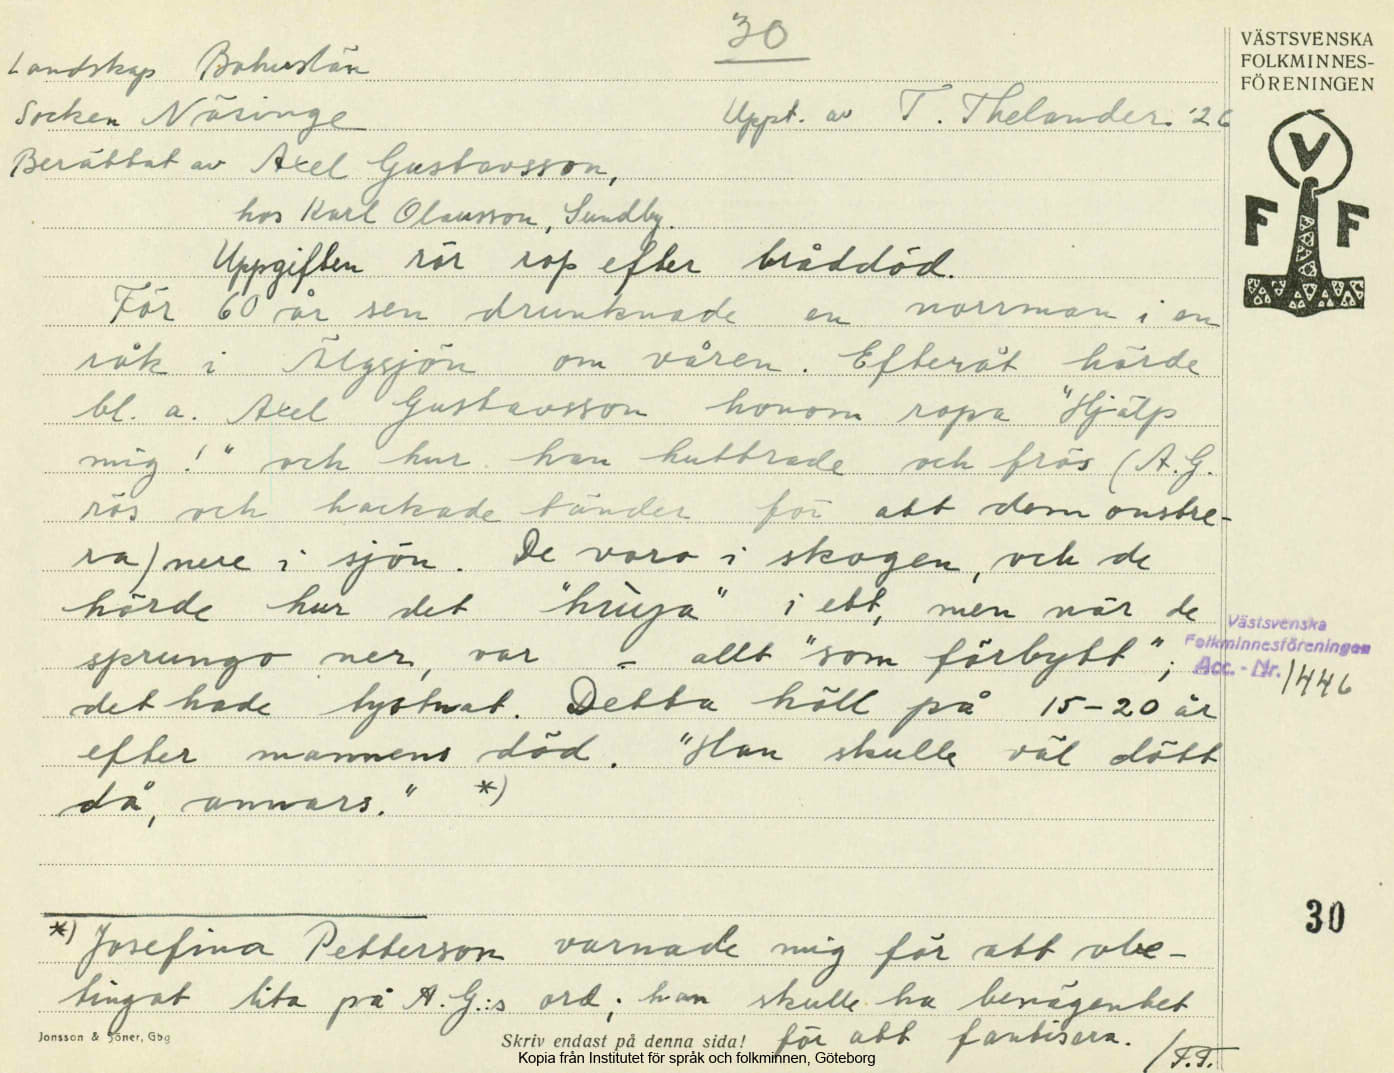 30
VÄSTSVENSKA
FOLKMINNES-
FÖRENINGEN
Landskap Bohuslän
Socken Näsinge Uppt. av T. Thelander. '26
Berättat av Axel Gustavsson,
hos Karl Olausson, Sundby.
V
F F
Uppgiften rör rop efter bråddöd.
För 60 år sen drunknade en norrman i en
råk i Älgsjön om våren. Efteråt hörde
bl. a. Axel Gustavsson honom ropa "Hjälp
mig!" och hur han huttrade och frös (A.G.
rös och hackade tänder för att demonstre-
ra) nere i sjön. De voro i skogen, och de
hörde hur det "hùja" i ett, men när de
sprungo ner, var - allt "som förbytt";
det hade tystnat. Detta höll på 15-20 år
efter mannens död. "Han skulle väl dött
då, annars." *)
Västsvenska
Folkminnesföreningen
Acc. - Nr. 1446
30
*) Josefina Petterson varnade mig för att obe-
tingat lita på A.G.:s ord; han skulle ha benägenhet
för att fantisera. /T.T.
Jonsson & Söner, Gbg
Skriv endast på denna sida!
Kopia från Institutet för språk och folkminnen, Göteborg